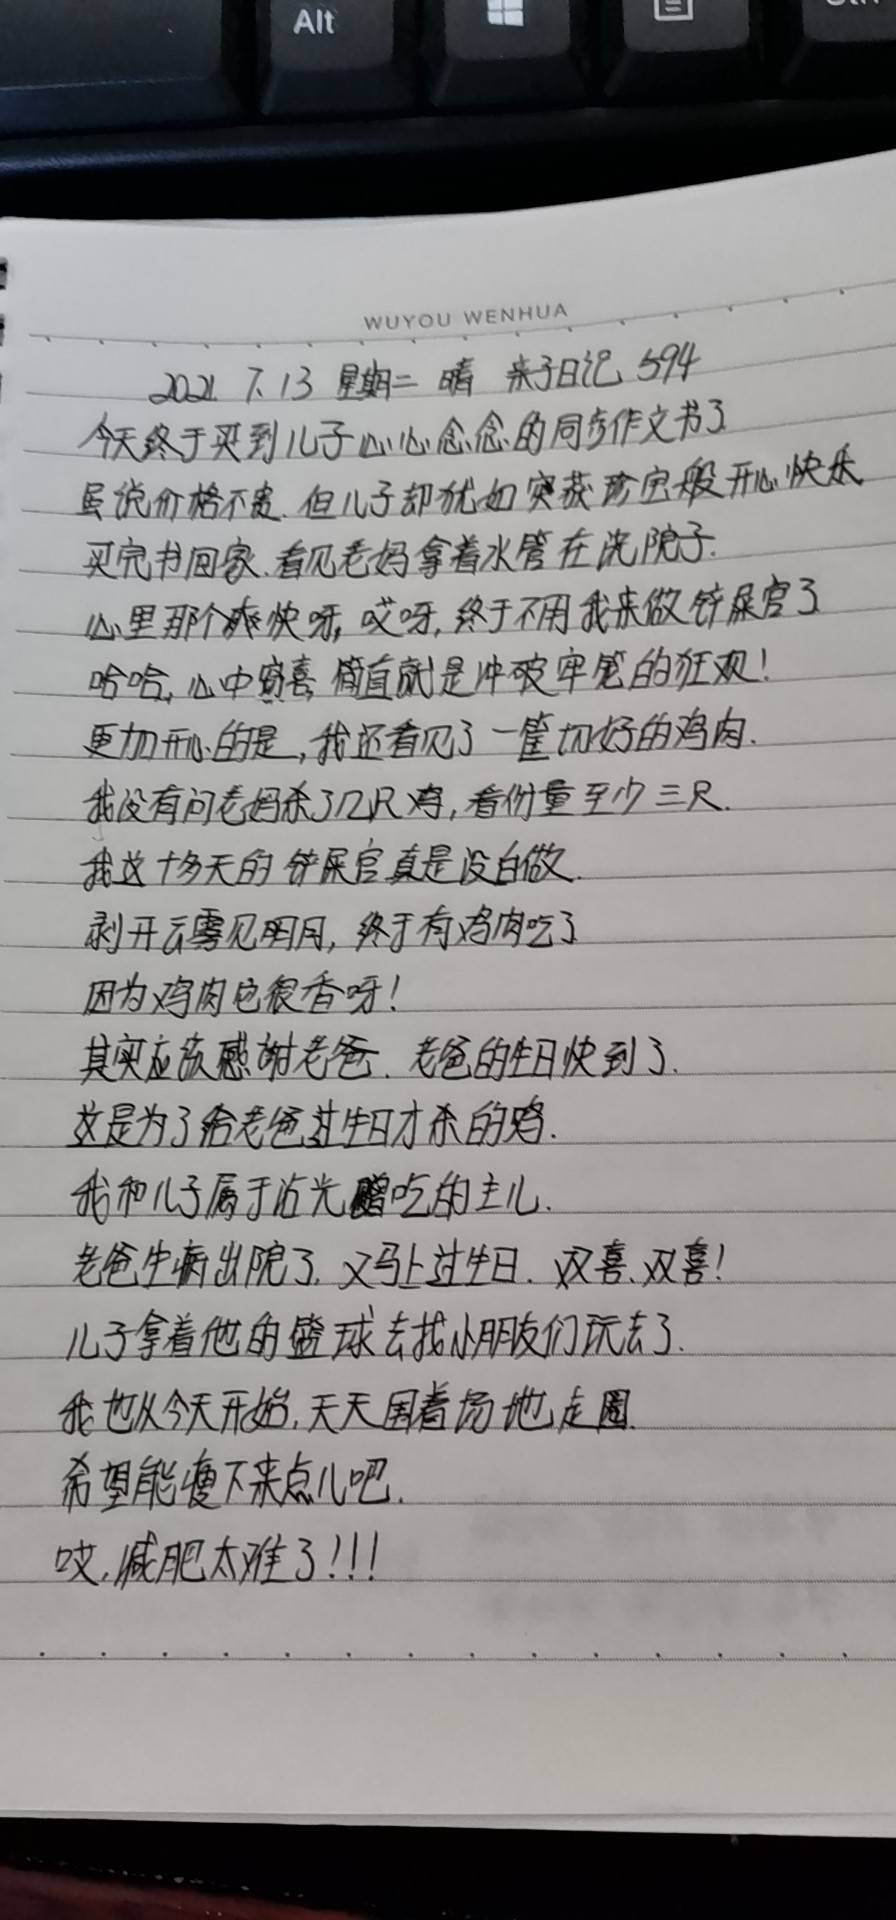 Alt
WUYOU WENHUA
2021. 7. 13 星期二 晴 亲子日记 594
今天终于买到儿子心心念念的同步作文书了
虽说价格不贵.但儿子却犹如突获珍宝般开心快乐
买完书回家.看见老妈拿着水管在洗院子.
心里那个爽快呀,哎呀,终于不用我来做铲屎官了
哈哈,心中窃喜,简直就是冲破牢笼的狂欢!
更加开心的是,我还看见了一筐切好的鸡肉.
我没有问老妈杀了几只鸡,看份量至少三只.
我这十多天的铲屎官真是没白做.
剥开云雾见明月,终于有鸡肉吃了
因为鸡肉也很香呀!
其实应该感谢老爸.老爸的生日快到了.
这是为了给老爸过生日才杀的鸡.
我和儿子属于沾光蹭吃的主儿.
老爸生病出院了.又马上过生日.双喜、双喜!
儿子拿着他的篮球去找小朋友们玩去了.
我也从今天开始.天天围着场地走圈.
希望能瘦下来点儿吧.
哎.减肥太难了!!!